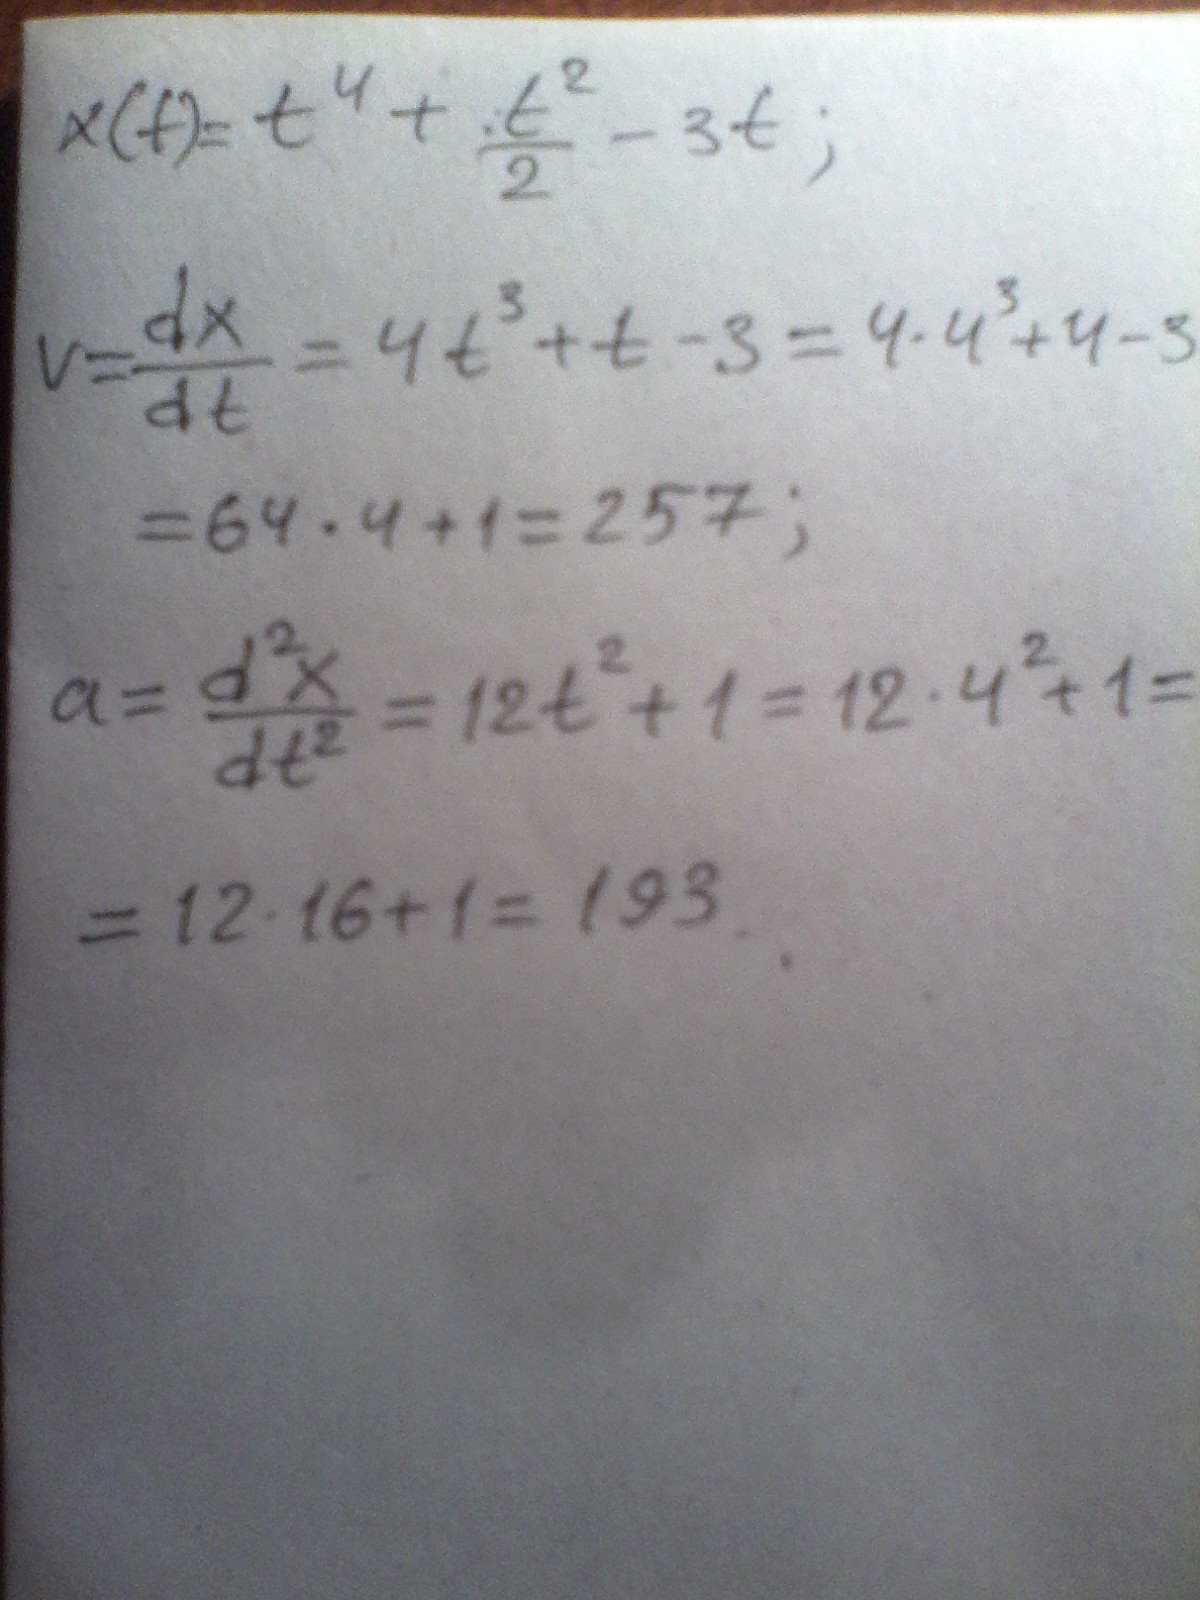 x(t)= t⁴ + t²/2 - 3t;
v= dx/dt = 4t³+t-3 = 4·4³+4-3
=64·4+1=257;
a= d²x/dt² = 12t²+1 = 12·4²+1=
=12·16+1= 193.